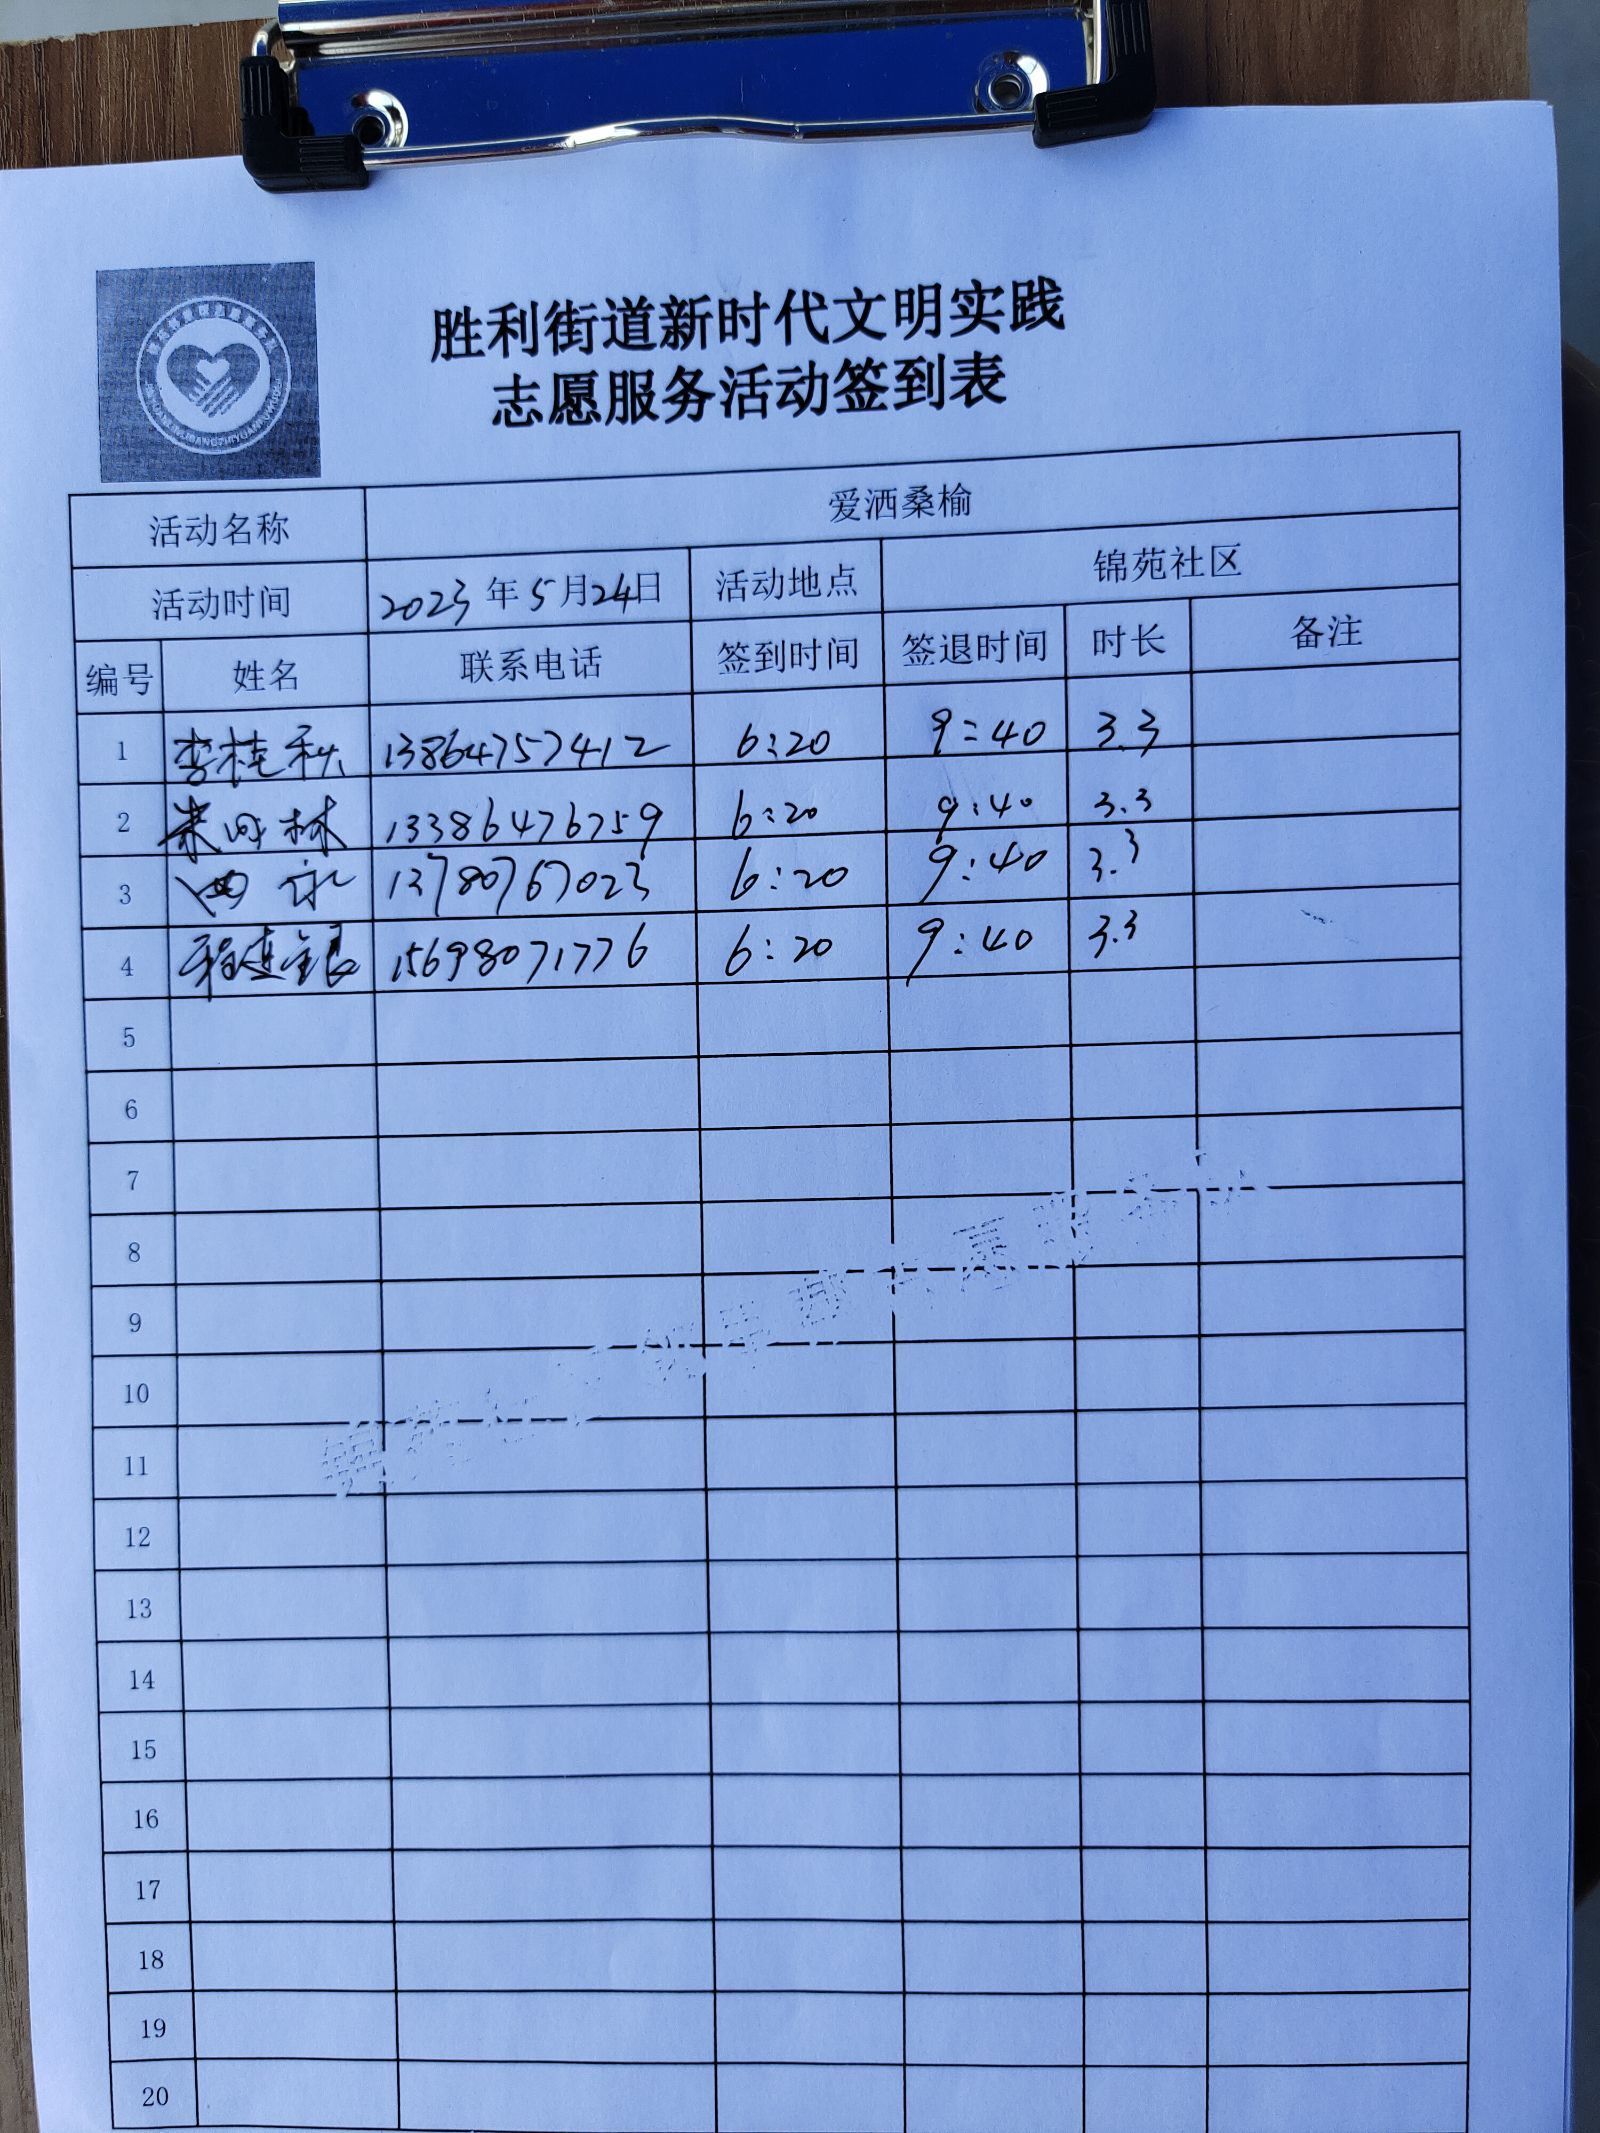 胜利街道新时代文明实践
志愿服务活动签到表
活动名称 爱洒桑榆
活动时间 2023年5月24日 活动地点 锦苑社区
编号 姓名 联系电话 签到时间 签退时间 时长 备注
1 李桂秋 13864757412 6:20 9:40 3.3
2 林 13386476759 6:20 9:40 3.3
3 13780767023 6:20 9:40 3.3
4 程连银 15698071776 6:20 9:40 3.3
5
6
7
8
9
10
11
12
13
14
15
16
17
18
19
20